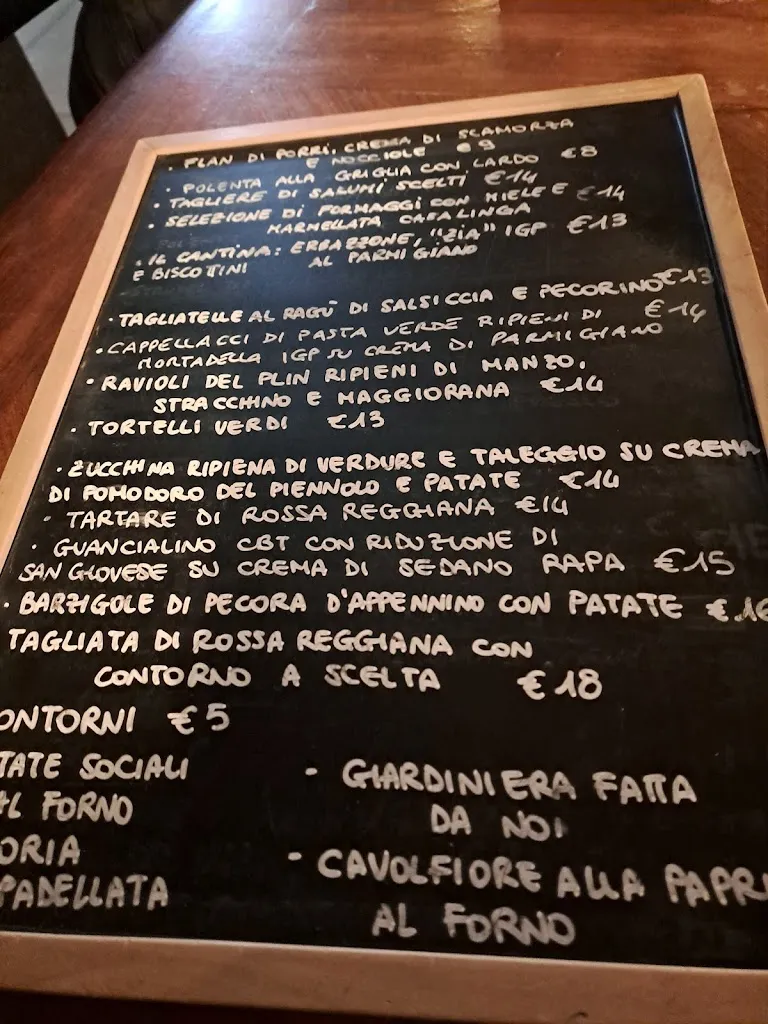 · FLAN DI PORRI, CREMA DI SCAMORZA
E NOCCIOLE €9
· POLENTA ALLA GRIGLIA CON LARDO €8
· TAGLIERE DI SALUMI SCELTI €14
· SELEZIONE DI FORMAGGI CON MIELE E €14
MARMELLATA CASALINGA
· IL CANTINA: ERBAZZONE, "ZIA" IGP €13
E BISCOTTINI AL PARMIGIANO
· TAGLIATELLE AL RAGÙ DI SALSICCIA E PECORINO €13
· CAPPELLACCI DI PASTA VERDE RIPIENI DI €14
MORTADELLA IGP SU CREMA DI PARMIGIANO
· RAVIOLI DEL PLIN RIPIENI DI MANZO,
STRACCHINO E MAGGIORANA €14
· TORTELLI VERDI €13
· ZUCCHINA RIPIENA DI VERDURE E TALEGGIO SU CREMA
DI POMODORO DEL PIENNOLO E PATATE €14
· TARTARE DI ROSSA REGGIANA €14
· GUANCIALINO CBT CON RIDUZIONE DI
SANGIOVESE SU CREMA DI SEDANO RAPA €15
· BARZIGOLE DI PECORA D'APPENNINO CON PATATE €16
TAGLIATA DI ROSSA REGGIANA CON
CONTORNO A SCELTA €18
ONTORNI €5
TATE SOCIALI
AL FORNO
ORIA
PADELLATA
- GIARDINIERA FATTA
DA NOI
- CAVOLFIORE ALLA PAPRI
AL FORNO